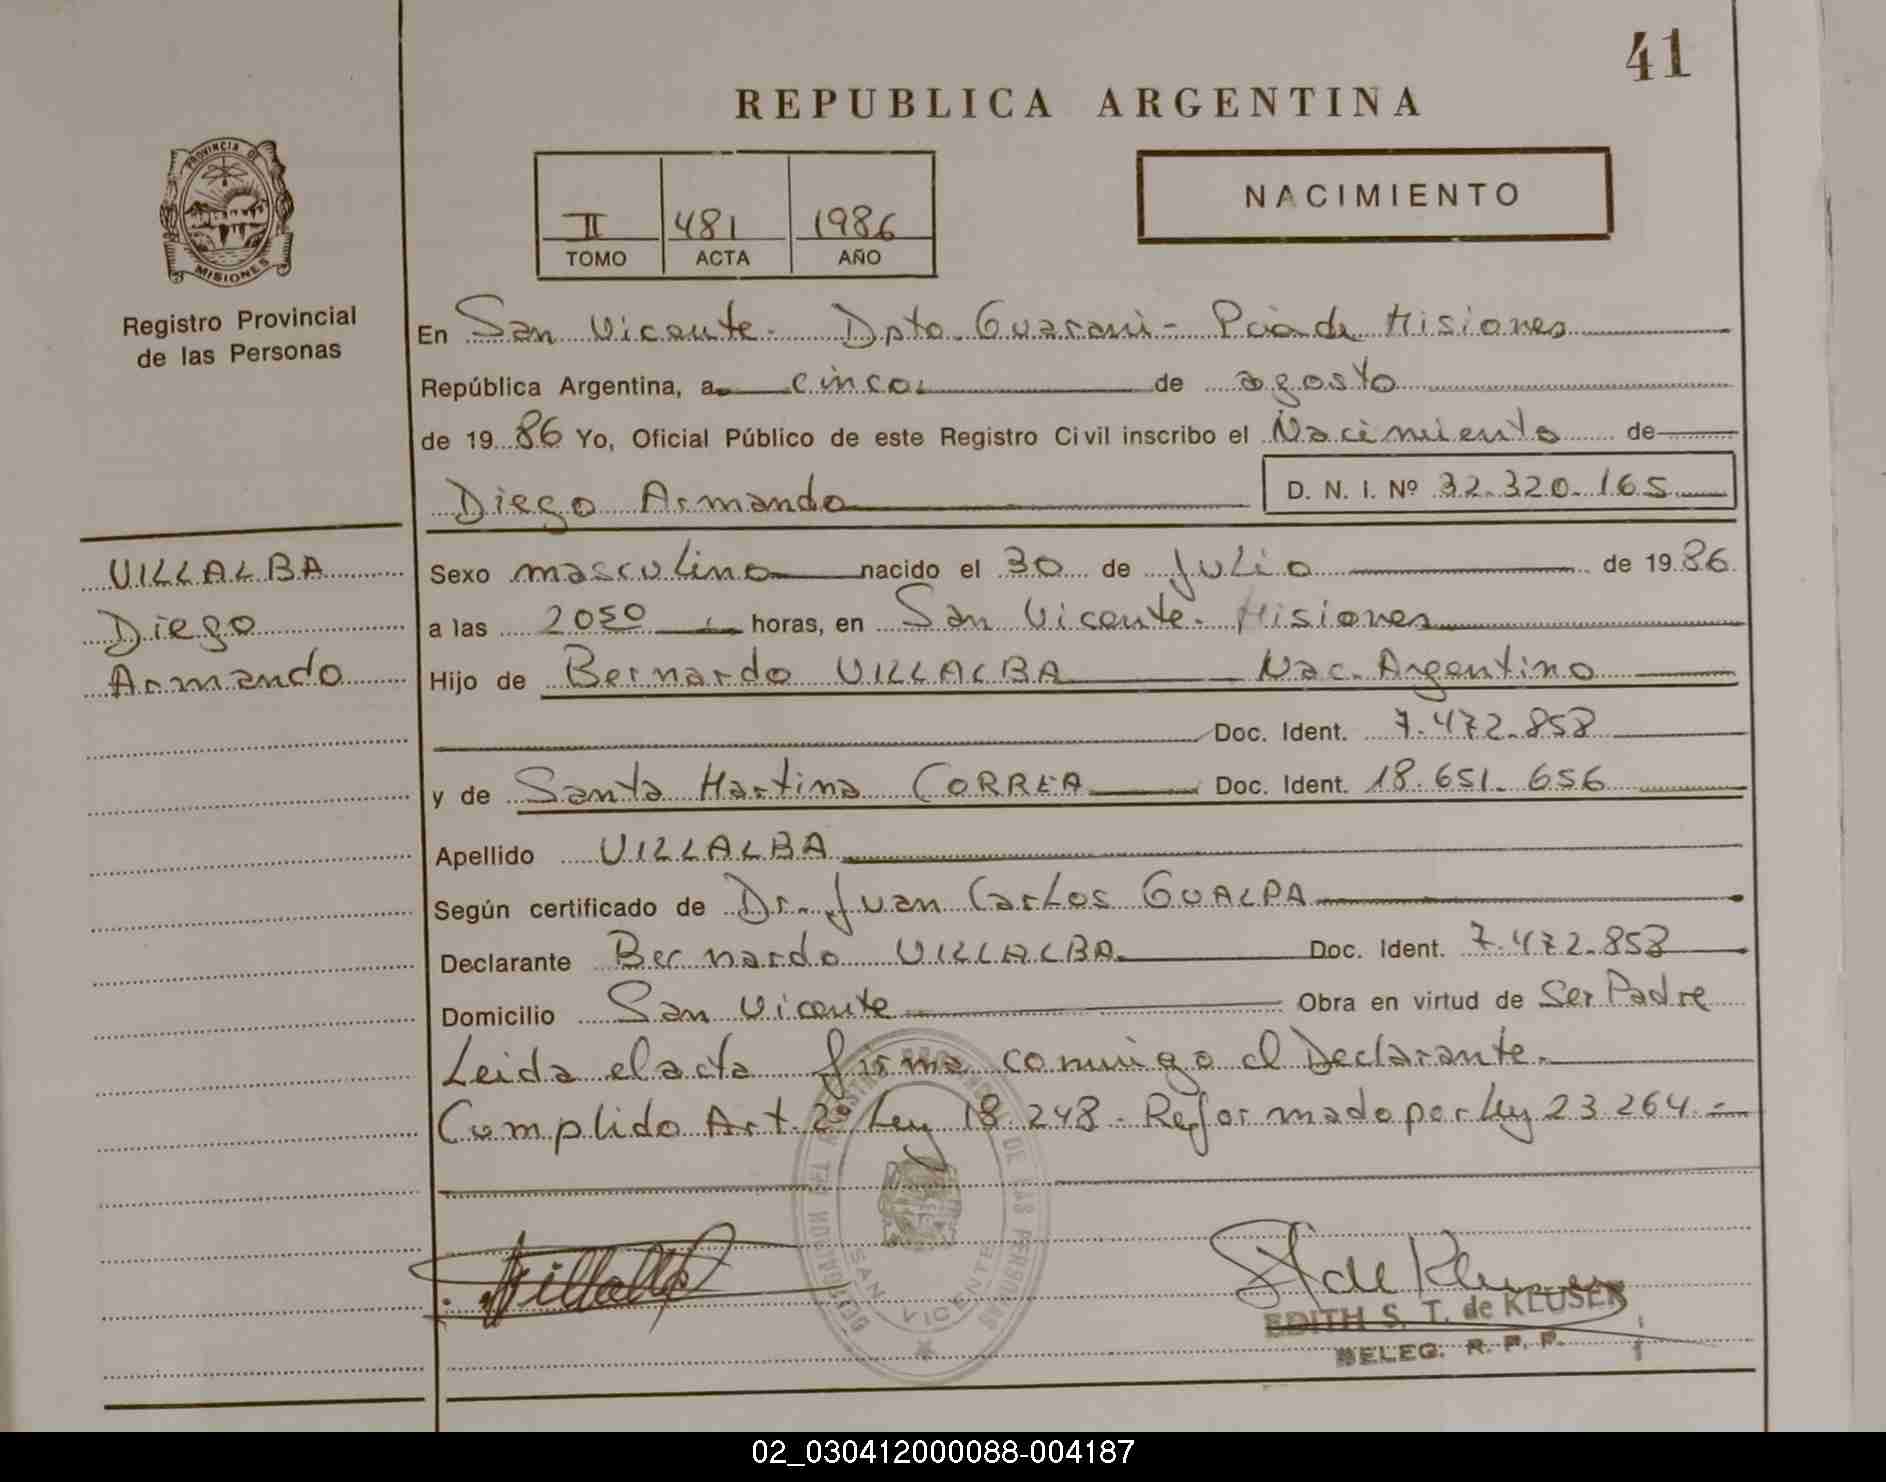 41
REPUBLICA ARGENTINA
PROVINCIA DE
MISIONES
Registro Provincial
de las Personas
II 481 1986
TOMO ACTA AÑO
NACIMIENTO
En San Vicente - Dpto. Guaraní - Pcia de Misiones
República Argentina, a cinco de agosto
de 19 86 Yo, Oficial Público de este Registro Civil inscribo el Nacimiento de
Diego Armando D. N. I. Nº 32.320.165
VILLALBA
Diego
Armando
Sexo masculino nacido el 30 de Julio de 19 86
a las 2050 horas, en San Vicente - Misiones
Hijo de Bernardo VILLALBA Nac. Argentino
Doc. Ident. 7.472.858
y de Santa Martina CORREA Doc. Ident. 18.651.656
Apellido VILLALBA
Según certificado de Dr. Juan Carlos GUALPA
Declarante Bernardo VILLALBA Doc. Ident. 7.472.858
Domicilio San Vicente Obra en virtud de Ser Padre
Leida el acta firma conmigo el Declarante.
Cumplido Art. 2º Ley 18.248 - Reformado por Ley 23.264 -
DE LAS PERSONAS
SAN VICENTE
Villalba
de Kluser
EDITH S. T. de KLUSER
DELEG. R. P. P.
02_030412000088-004187